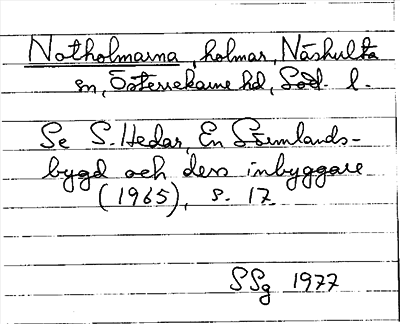 Notholmarna, holmar, Näshulta
sn, Österrekarne hd, Söd. l.
Se S. Hedar, En Sörmlands-
bygd och dess inbyggare
(1965), s. 17
SSg 1977